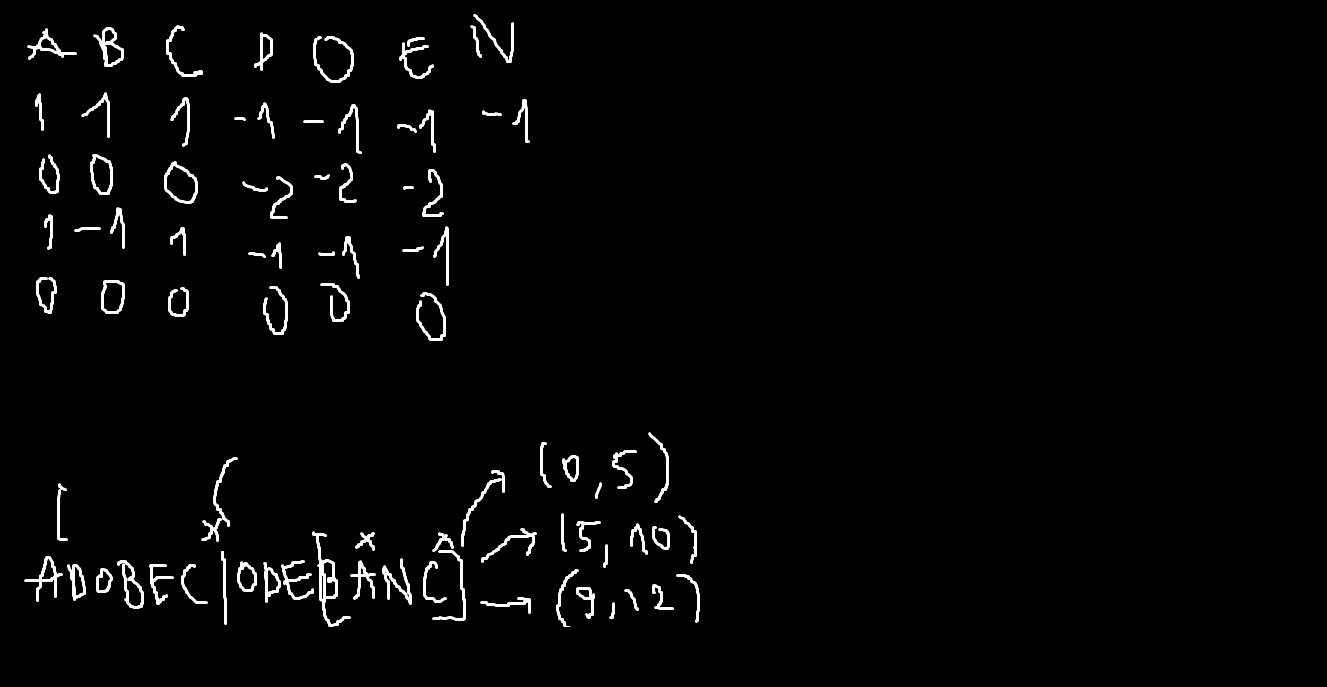 A B C D O E N
1 1 1 -1 -1 -1 -1
0 0 0 -2 -2 -2
1 -1 1 -1 -1 -1
0 0 0 0 0 0
(0,5)
[ (
x [ x ^ (5,10)
ADOBEC|ODE[BANC]
(9,12)